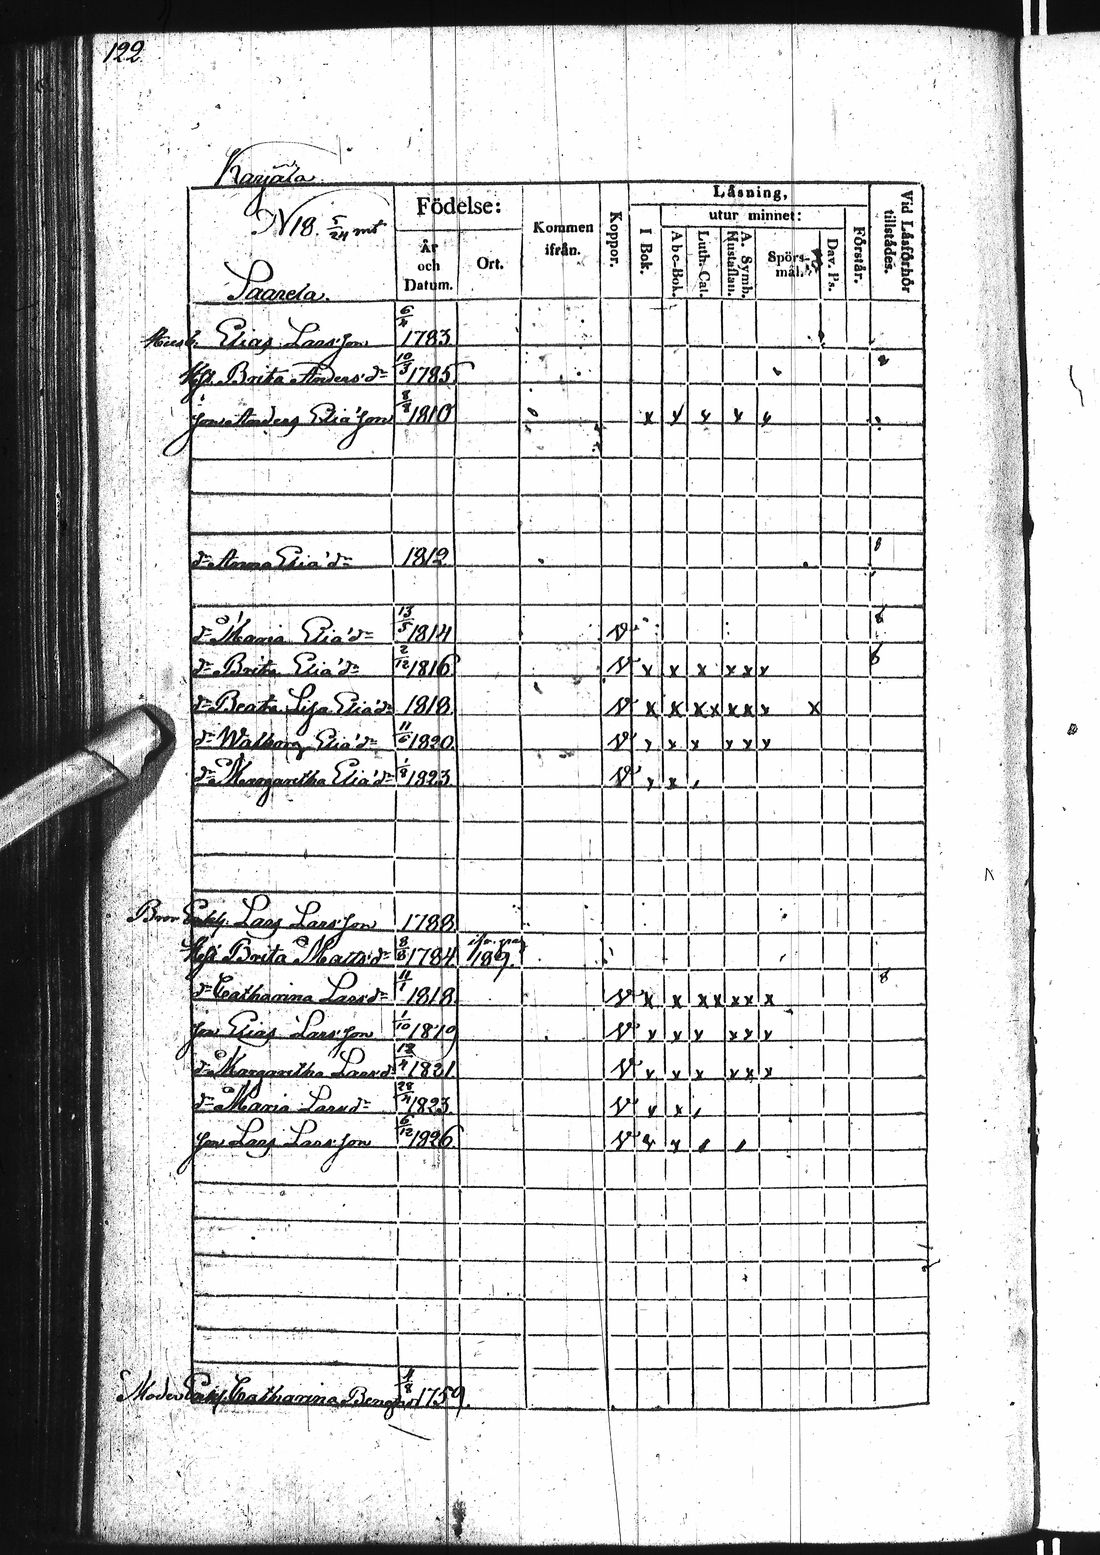 122
Karjala
N 18. 5/24 mt
Saarela.
Födelse:
År och Datum.
Ort.
Kommen ifrån.
Koppor.
Läsning,
I Bok.
utur minnet:
Abc-Bok.
Luth. Cat.
A. Symb. Hustaflan.
Spörs-mål.
Dav. Ps.
Förstår.
Vid Läsförhör tillstädes.
Husb. Elias Larsson 6/4 1783
Hst. Brita Anders dr 10/3 1785
son Anders Elia'son 8/8 1810 x x x x x
dr Anna Elia'dr 1812
dr Maria Elia'dr 13/5 1814 V
dr Brita Elia'dr 2/12 1816 V x x x x x x
dr Beata Lisa Elia'dr 1818 V x x x x x x x x
dr Walborg Elia'dr 11/6 1820 V x x x x x x
dr Margaretha Elia'dr 1/8 1823 V x x
Bror Enkl. Lars Larsson 1788
Hst Brita Matts dr 8/8 1784
dr Catharina Lars dr 11/1 1818 V x x x x x x x
son Elias Larsson 1/10 1819 V x x x x x x
dr Margaretha Lars dr 12/4 1821 V x x x x x x
dr Maria Lars dr 28/4 1823 V x x
son Lars Larsson 6/12 1826 V x x
Moder Enk. Catharina Bengts 4/8 1759.